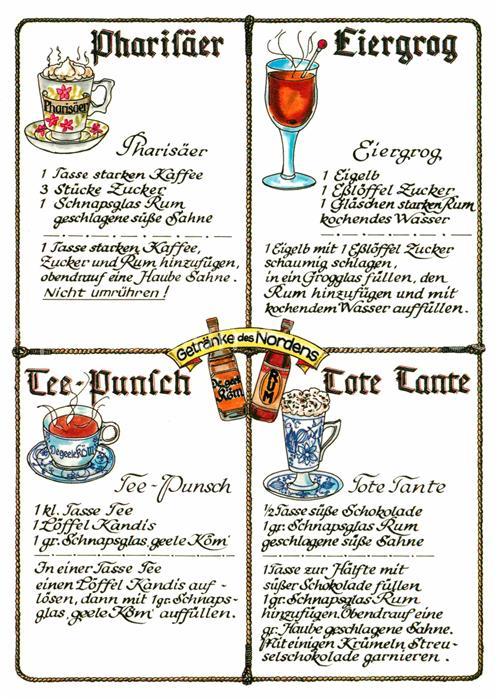 Pharisäer
Pharisäer
Pharisäer
1 Tasse starken Kaffee
3 Stücke Zucker
1 Schnapsglas Rum
geschlagene süße Sahne
1 Tasse starken Kaffee,
Zucker und Rum hinzufügen,
obendrauf eine Haube Sahne.
Nicht umrühren!
Eiergrog
Eiergrog
1 Eigelb
1 Eßlöffel Zucker
1 Gläschen starken Rum
kochendes Wasser
1 Eigelb mit 1 Eßlöffel Zucker
schaumig schlagen,
in ein Grogglas füllen, den
Rum hinzufügen und mit
kochendem Wasser auffüllen.
Getränke des Nordens
De geele
Köm
RUM
Tee-Punsch
De geele Köm
Tee-Punsch
1 kl. Tasse Tee
1 Löffel Kandis
1 gr. Schnapsglas 'geele Köm'
In einer Tasse Tee
einen Löffel Kandis auf-
lösen, dann mit 1 gr. Schnaps-
glas 'geele Köm' auffüllen.
Tote Tante
Tote Tante
½ Tasse süße Schokolade
1 gr. Schnapsglas Rum
geschlagene süße Sahne
1 Tasse zur Hälfte mit
süßer Schokolade füllen
1 gr. Schnapsglas Rum
hinzufügen. Obendrauf eine
gr. Haube geschlagene Sahne.
Mit einigen Krümeln Streu-
selschokolade garnieren.